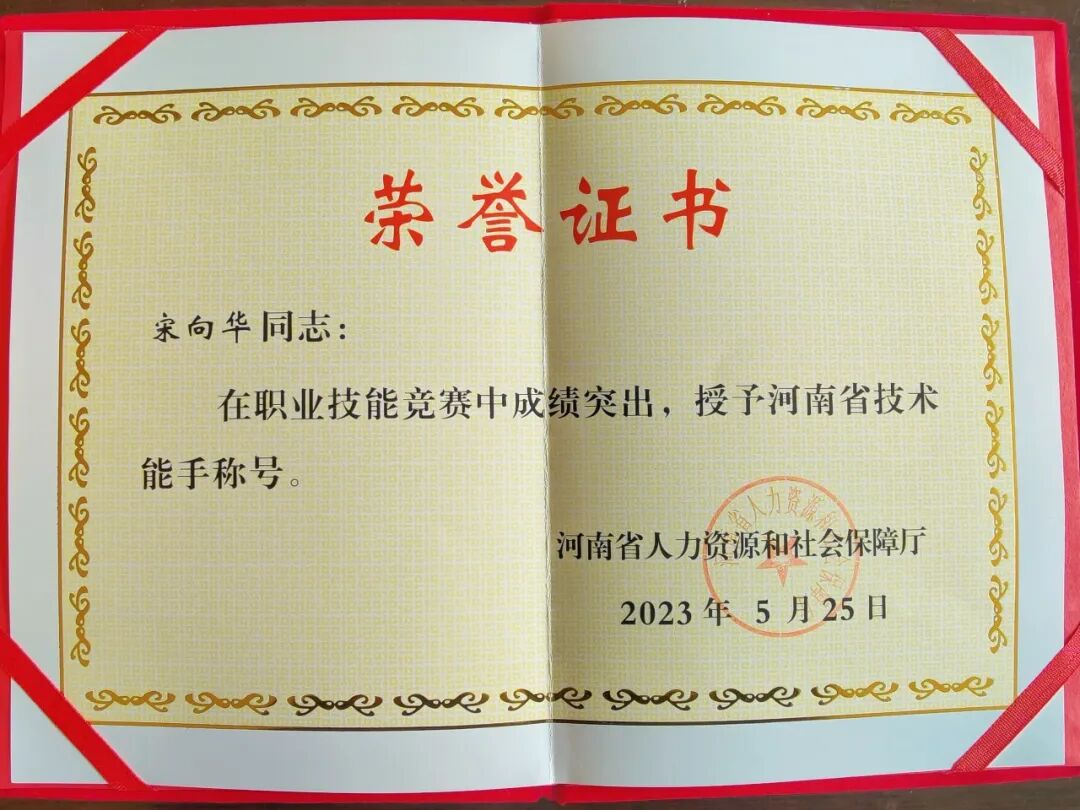 荣誉证书
宋向华同志：
在职业技能竞赛中成绩突出，授予河南省技术
能手称号。
河南省人力资源和社会保障厅
2023年 5 月25日